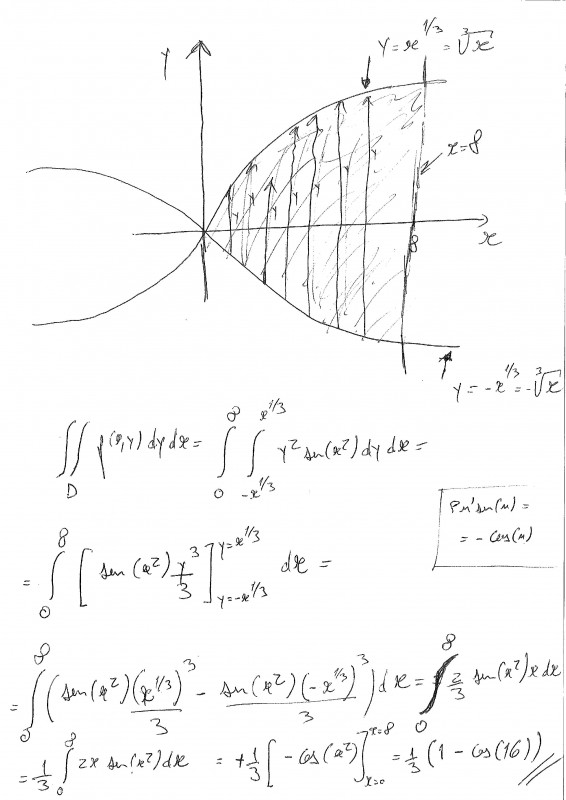 y = x^{1/3} = ∛x
y
x=8
8
x
y = -x^{1/3} = -∛x
∬_D f(x,y) dy dx = ∫_0^8 ∫_{-x^{1/3}}^{x^{1/3}} y² sen(x²) dy dx =
= ∫_0^8 [ sen(x²) y³/3 ]_{y=-x^{1/3}}^{y=x^{1/3}} dx =
∫u' sen(u) =
= - cos(u)
= ∫_0^8 ( sen(x²) (x^{1/3})³/3 - sen(x²) (-x^{1/3})³/3 ) dx = ∫_0^8 2/3 sen(x²) x dx
= 1/3 ∫_0^8 2x sen(x²) dx = +1/3 [ - cos(x²) ]_{x=0}^{x=8} = 1/3 (1 - cos(16))